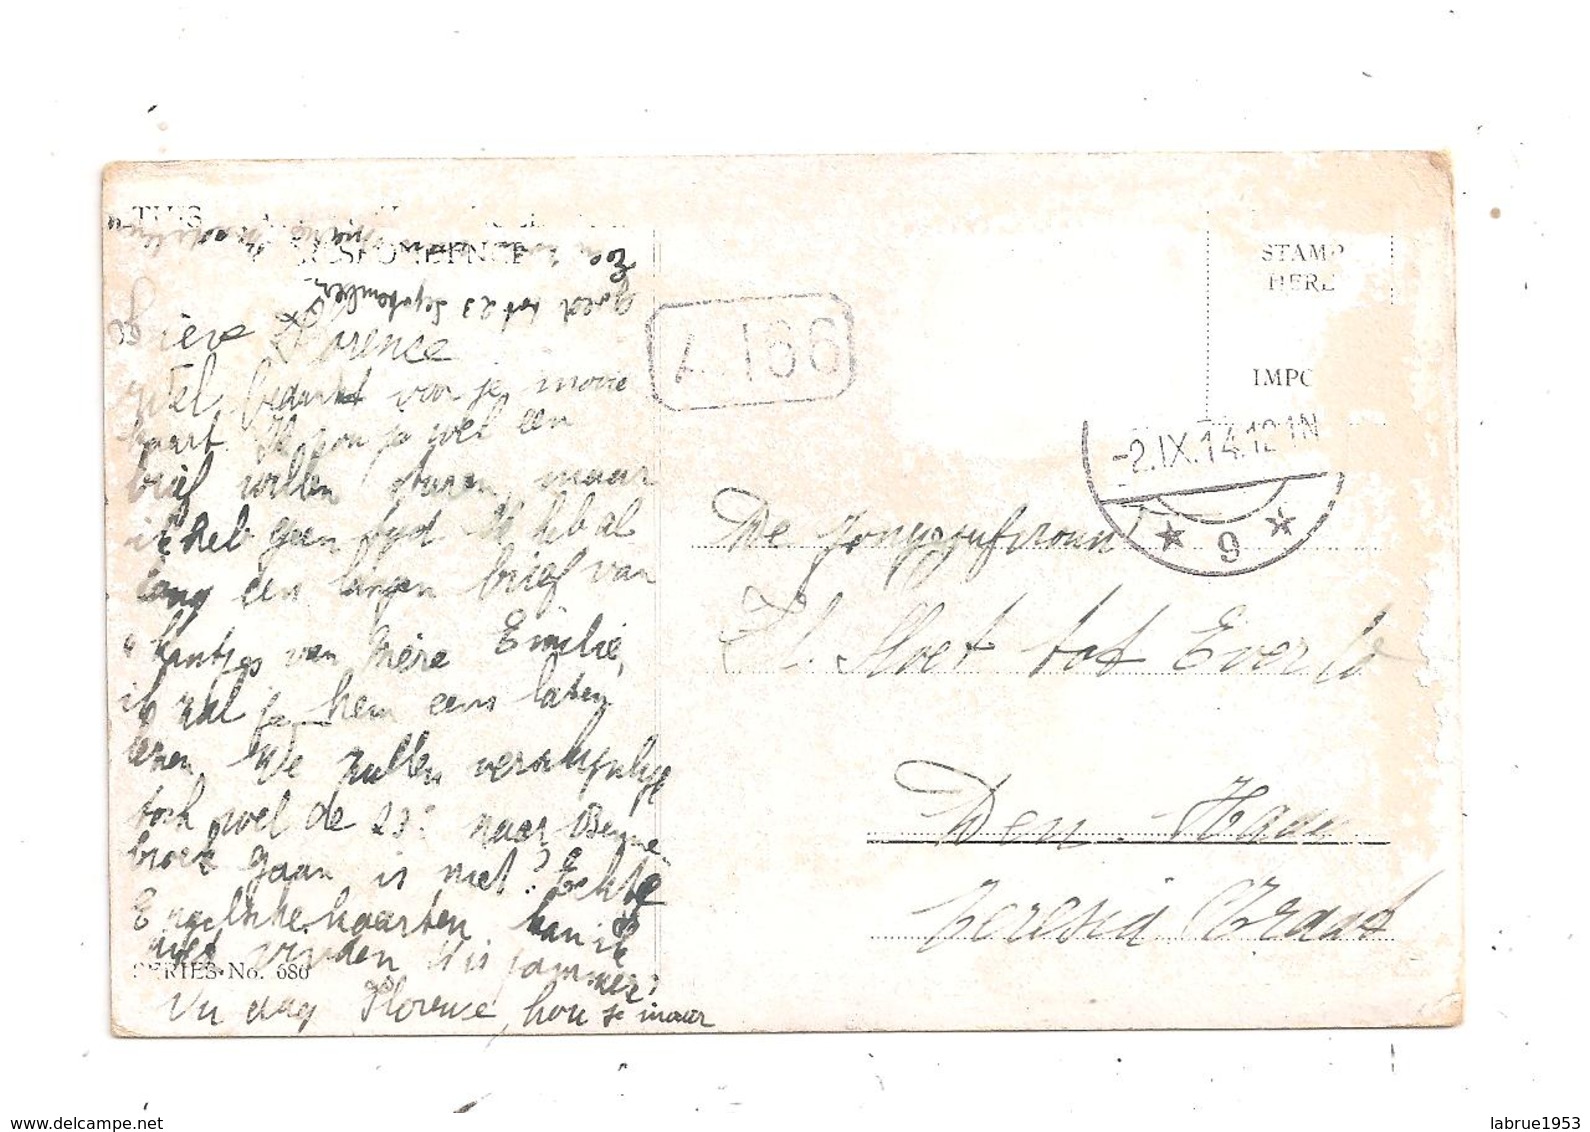 CORRESPONDENCE
goed tot 23 September
Lieve Florence
Wel bedankt voor je mooie
kaart. Ik zou je wel een
brief willen sturen, maar
ik heb geen tyd. Ik heb al
lang een langen brief van
kantjes van Mère Emilie,
ik zal je hem eens laten
lezen. We zullen
toch wel de 23e naar Benne-
broek gaan is niet? Echte
Engelsche kaarten kan ik
niet vinden 't is jammer!
Nu dag Florence, hou je maar
SERIES No. 680
A 166
STAMP
HERE
IMPO
-2.IX.14.12 1N
9
De Jongejufvrouw
Sloet tot Everlo
Den Haag
Teresia Straat
www.delcampe.net
labrue1953